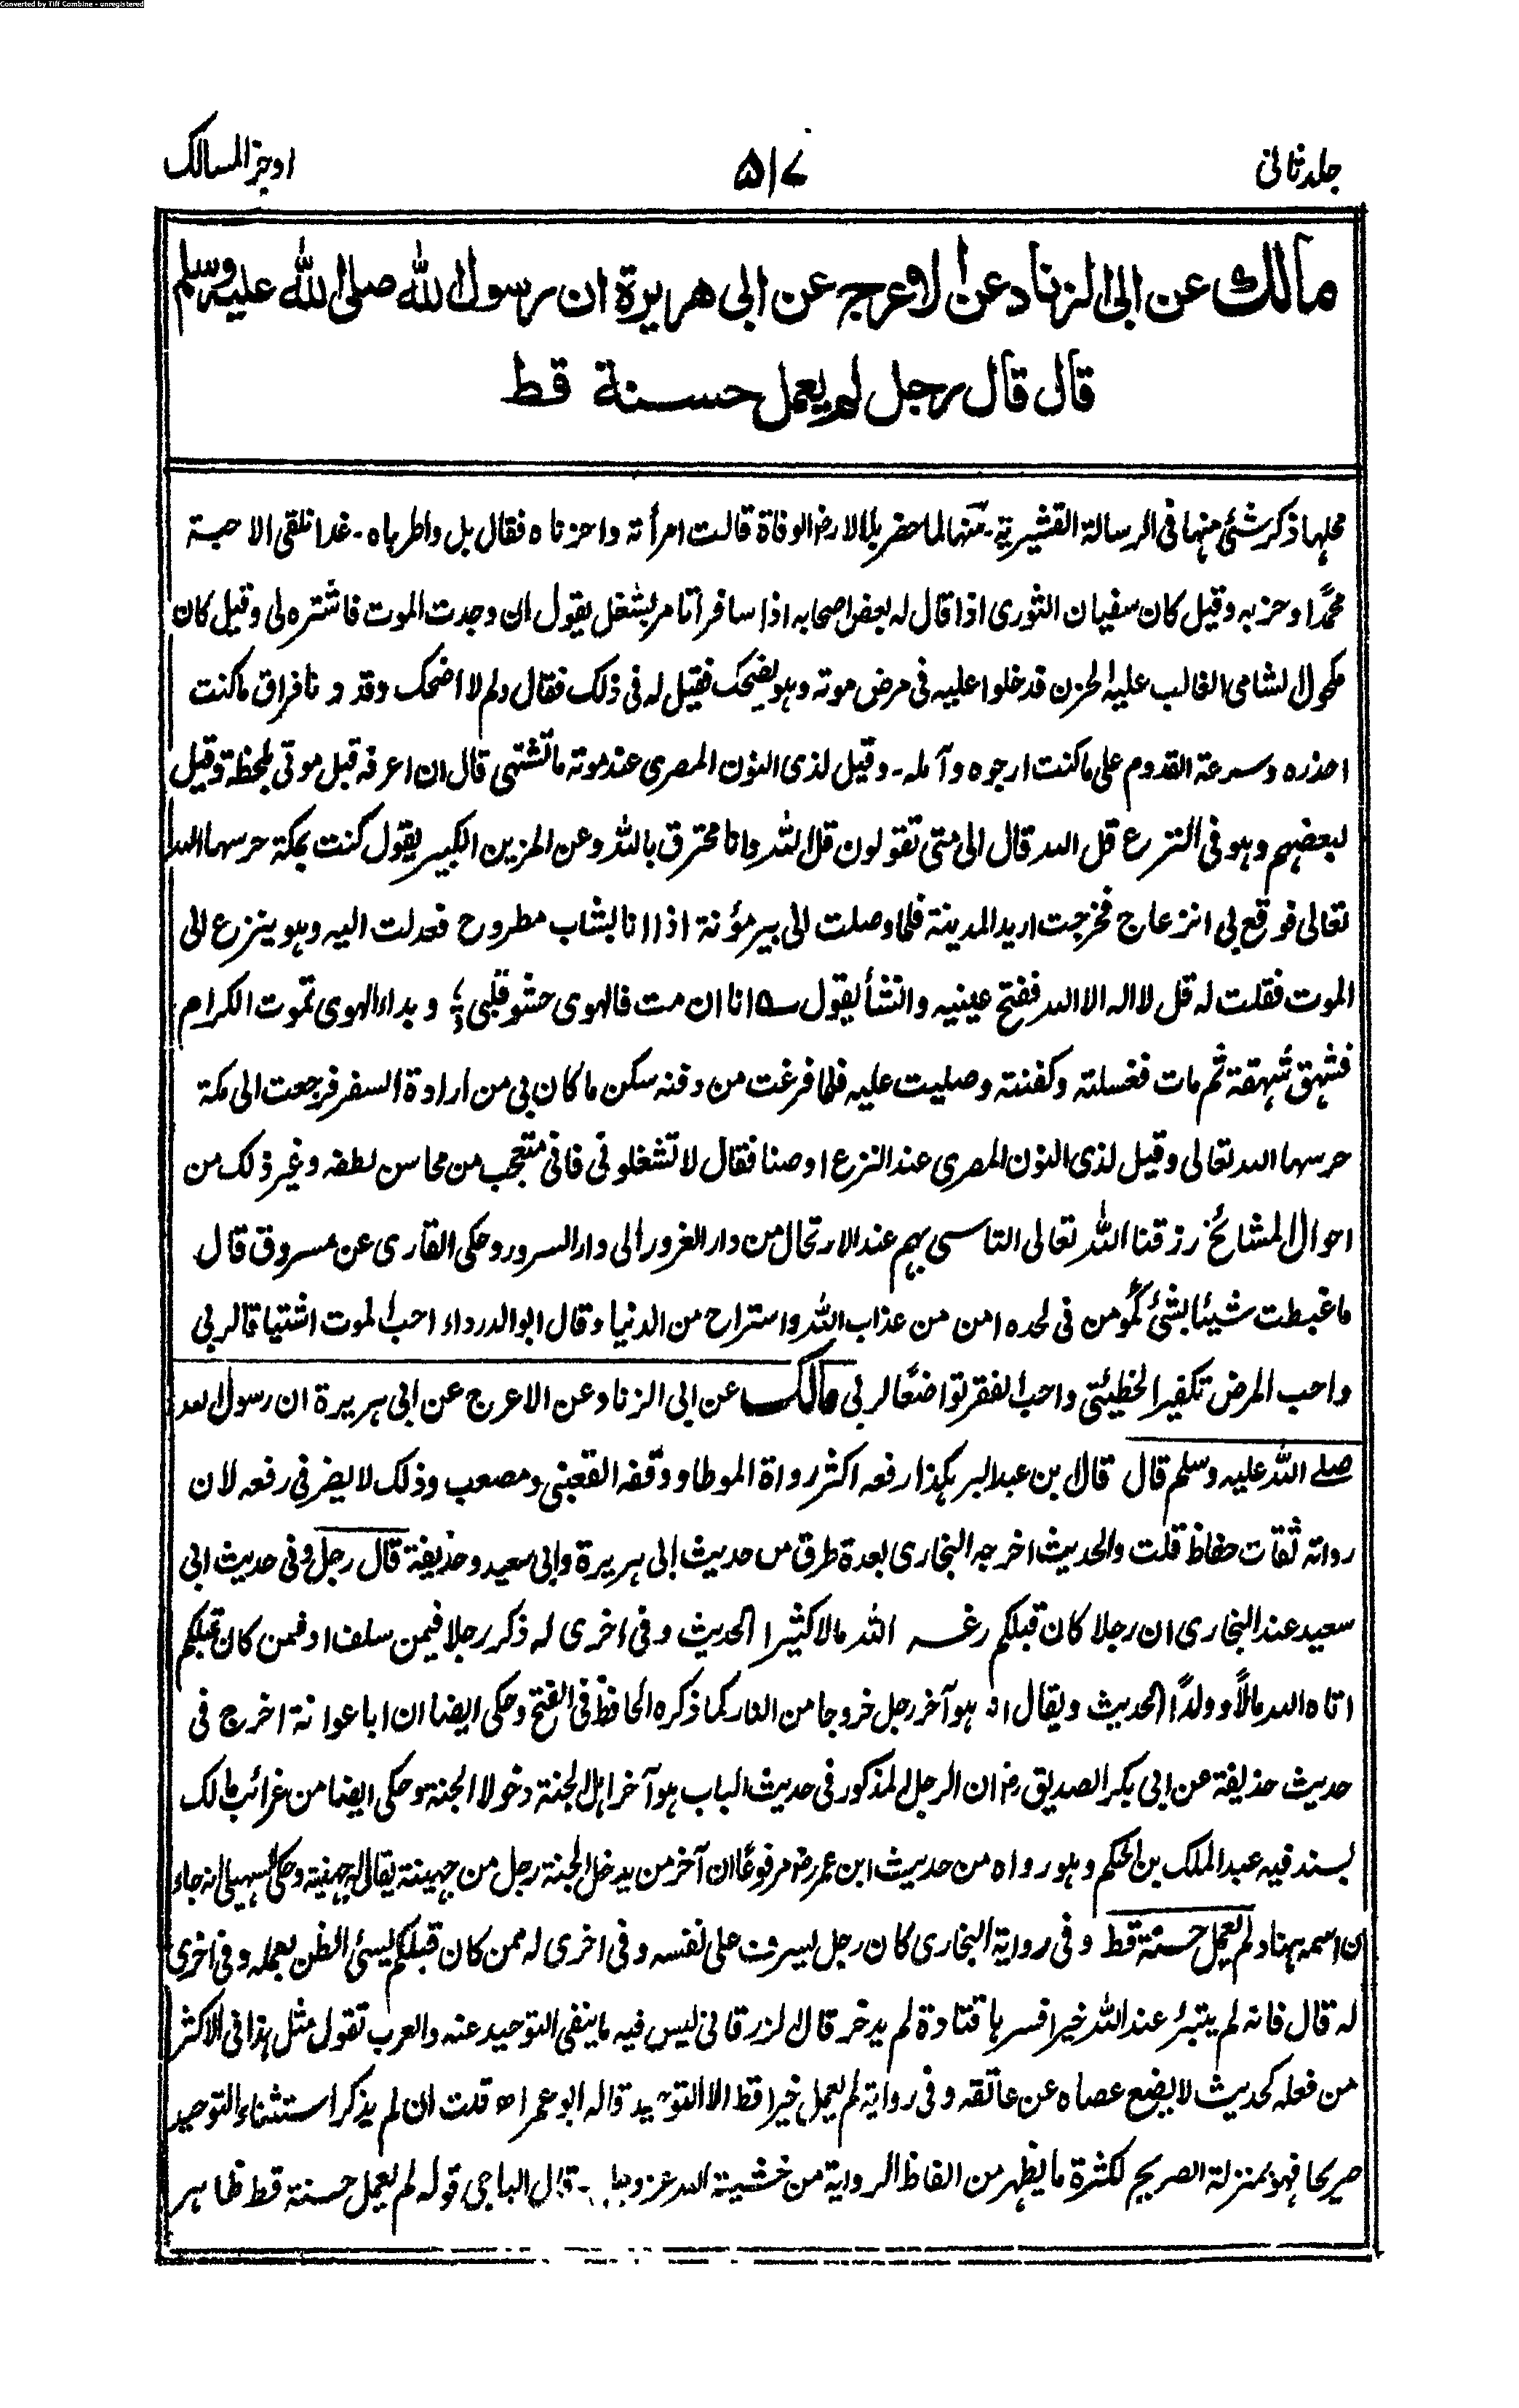 Converted by Tiff Combine - unregistered
جلد ثانی ۵۱۷ اوجز المسالک
مالك عن ابى الزناد عن الاعرج عن ابى هريرة ان رسول الله صلى الله عليه وسلم
قال قال رجل لم يعمل حسنة قط
محلها ذكر شئ منها فى الرسالة القشيرية - منها لما حضر بلالا رض الوفاة قالت امرأته واحزناه فقال بل واطرباه - غدا نلقى الاحبة
محمدًا وحزبه وقيل كان سفيان الثورى اذا قال له بعض اصحابه اذا سافر أتامر بشغل يقول ان وجدت الموت فاشتره لى وقيل كان
مكحول الشامى الغالب عليه الحزن فدخلوا عليه فى مرض موته وهو يضحك فقيل له فى ذلك فقال ولم لا اضحك وقد دنا فراق ما كنت
احذره وسرعة القدوم على ما كنت ارجوه وآمله - وقيل لذى النون المصرى عند موته ما تشتهى قال ان اعرفه قبل موتى بلحظة وقيل
لبعضهم وهو فى النزع قل الله قال الى متى تقولون قل الله وانا محترق بالله وعن المزين الكبير يقول كنت بمكة حرسها الله
تعالى فوقع بى انزعاج فخرجت اريد المدينة فلما وصلت الى بير مؤنة اذا انا بشاب مطروح فعدلت اليه وهو ينزع الى
الموت فقلت له قل لا اله الا الله ففتح عينيه وانشأ يقول ؎ انا ان مت فالهوى حشو قلبى ؛ وبداء الهوى تموت الكرام
فشهق شهقة ثم مات فغسلته وكفنته وصليت عليه فلما فرغت من دفنه سكن ما كان بى من ارادة السفر فرجعت الى مكة
حرسها الله تعالى وقيل لذى النون المصرى عند النزع اوصنا فقال لا تشغلونى فانى متعجب من محاسن لطفه وغير ذلك من
احوال المشائخ رزقنا الله تعالى التاسى بهم عند الارتحال من دار الغرور الى دار السرور وحكى القارى عن مسروق قال
ما غبطت شيئا بشئ كمؤمن فى لحده امن من عذاب الله واستراح من الدنيا وقال ابو الدرداء احب الموت اشتياقا لربى
واحب المرض تكفيرا لخطيئتى واحب الفقر تواضعًا لربى مالك عن ابى الزناد عن الاعرج عن ابى هريرة ان رسول الله
صلے الله عليه وسلم قال قال بن عبد البر هكذا رفعه اكثر رواة الموطا ووقفه القعنبى ومصعب وذلك لا يضر فى رفعه لان
رواته ثقات حفاظ قلت والحديث اخرجه البخارى بعدة طرق من حديث ابى هريرة وابى سعيد وحذيفة قال رجل وفى حديث ابى
سعيد عند البخارى ان رجلا كان قبلكم رغسه الله مالا كثيرا الحديث وفى اخرى له ذكر رجلا فيمن سلف او فيمن كان قبلكم
اتاه الله مالاً وولدًا الحديث ويقال انه هو آخر رجل خروجا من النار كما ذكره الحافظ فى الفتح وحكى ايضا ان ابا عوانة اخرج فى
حديث حذيفة عن ابى بكر الصديق رض ان الرجل المذكور فى حديث الباب هو آخر اهل الجنة دخولا الجنة وحكى ايضا من غرائب مالك
بسند فيه عبد الملك بن الحكم وهو رواه من حديث ابن عمر رض مرفوعًا ان آخر من يدخل الجنة رجل من جهينة يقال له جهينة وحكى السهيلى انه جاء
ان اسمه هناد لم يعمل حسنة قط وفى رواية البخارى كان رجل يسرف على نفسه وفى اخرى له ممن كان قبلكم يسئ الظن بعمله وفى اخرى
له قال فانه لم يبتئر عند الله خيرا فسرها قتادة لم يدخر قال الزرقانى ليس فيه ما ينفى التوحيد عنه والعرب تقول مثل هذا فى الاكثر
من فعله كحديث لا يضع عصاه عن عاتقه وفى رواية لم يعمل خيرا قط الا التوحيد قاله ابو عمر اھ قلت ان لم يذكر استثناء التوحيد
صريحا فهو بمنزلة الصريح لكثرة ما يظهر من الفاظ الرواية من خشية الله عز وجل - قال الباجى قوله لم يعمل حسنة قط ظاهر